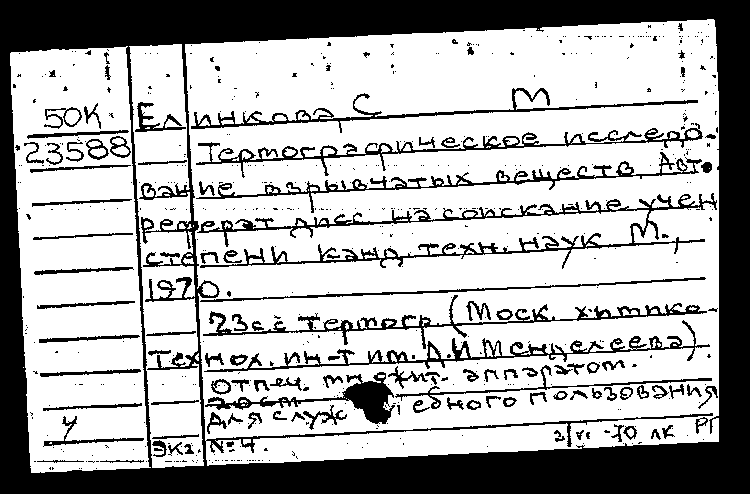 50К. Елинкова, С М
23588 Термографическое исследо-
вание взрывчатых веществ. Авт.
реферат дисс на соискание учен
степени канд. техн. наук М.,
1970.
23с с термогр. (Моск. химико-
технол. ин-т им. Д.И Менделеева).
Отпеч. множит. аппаратом.
для служебного пользования
4 экз. №4. -70 ЛК РГ